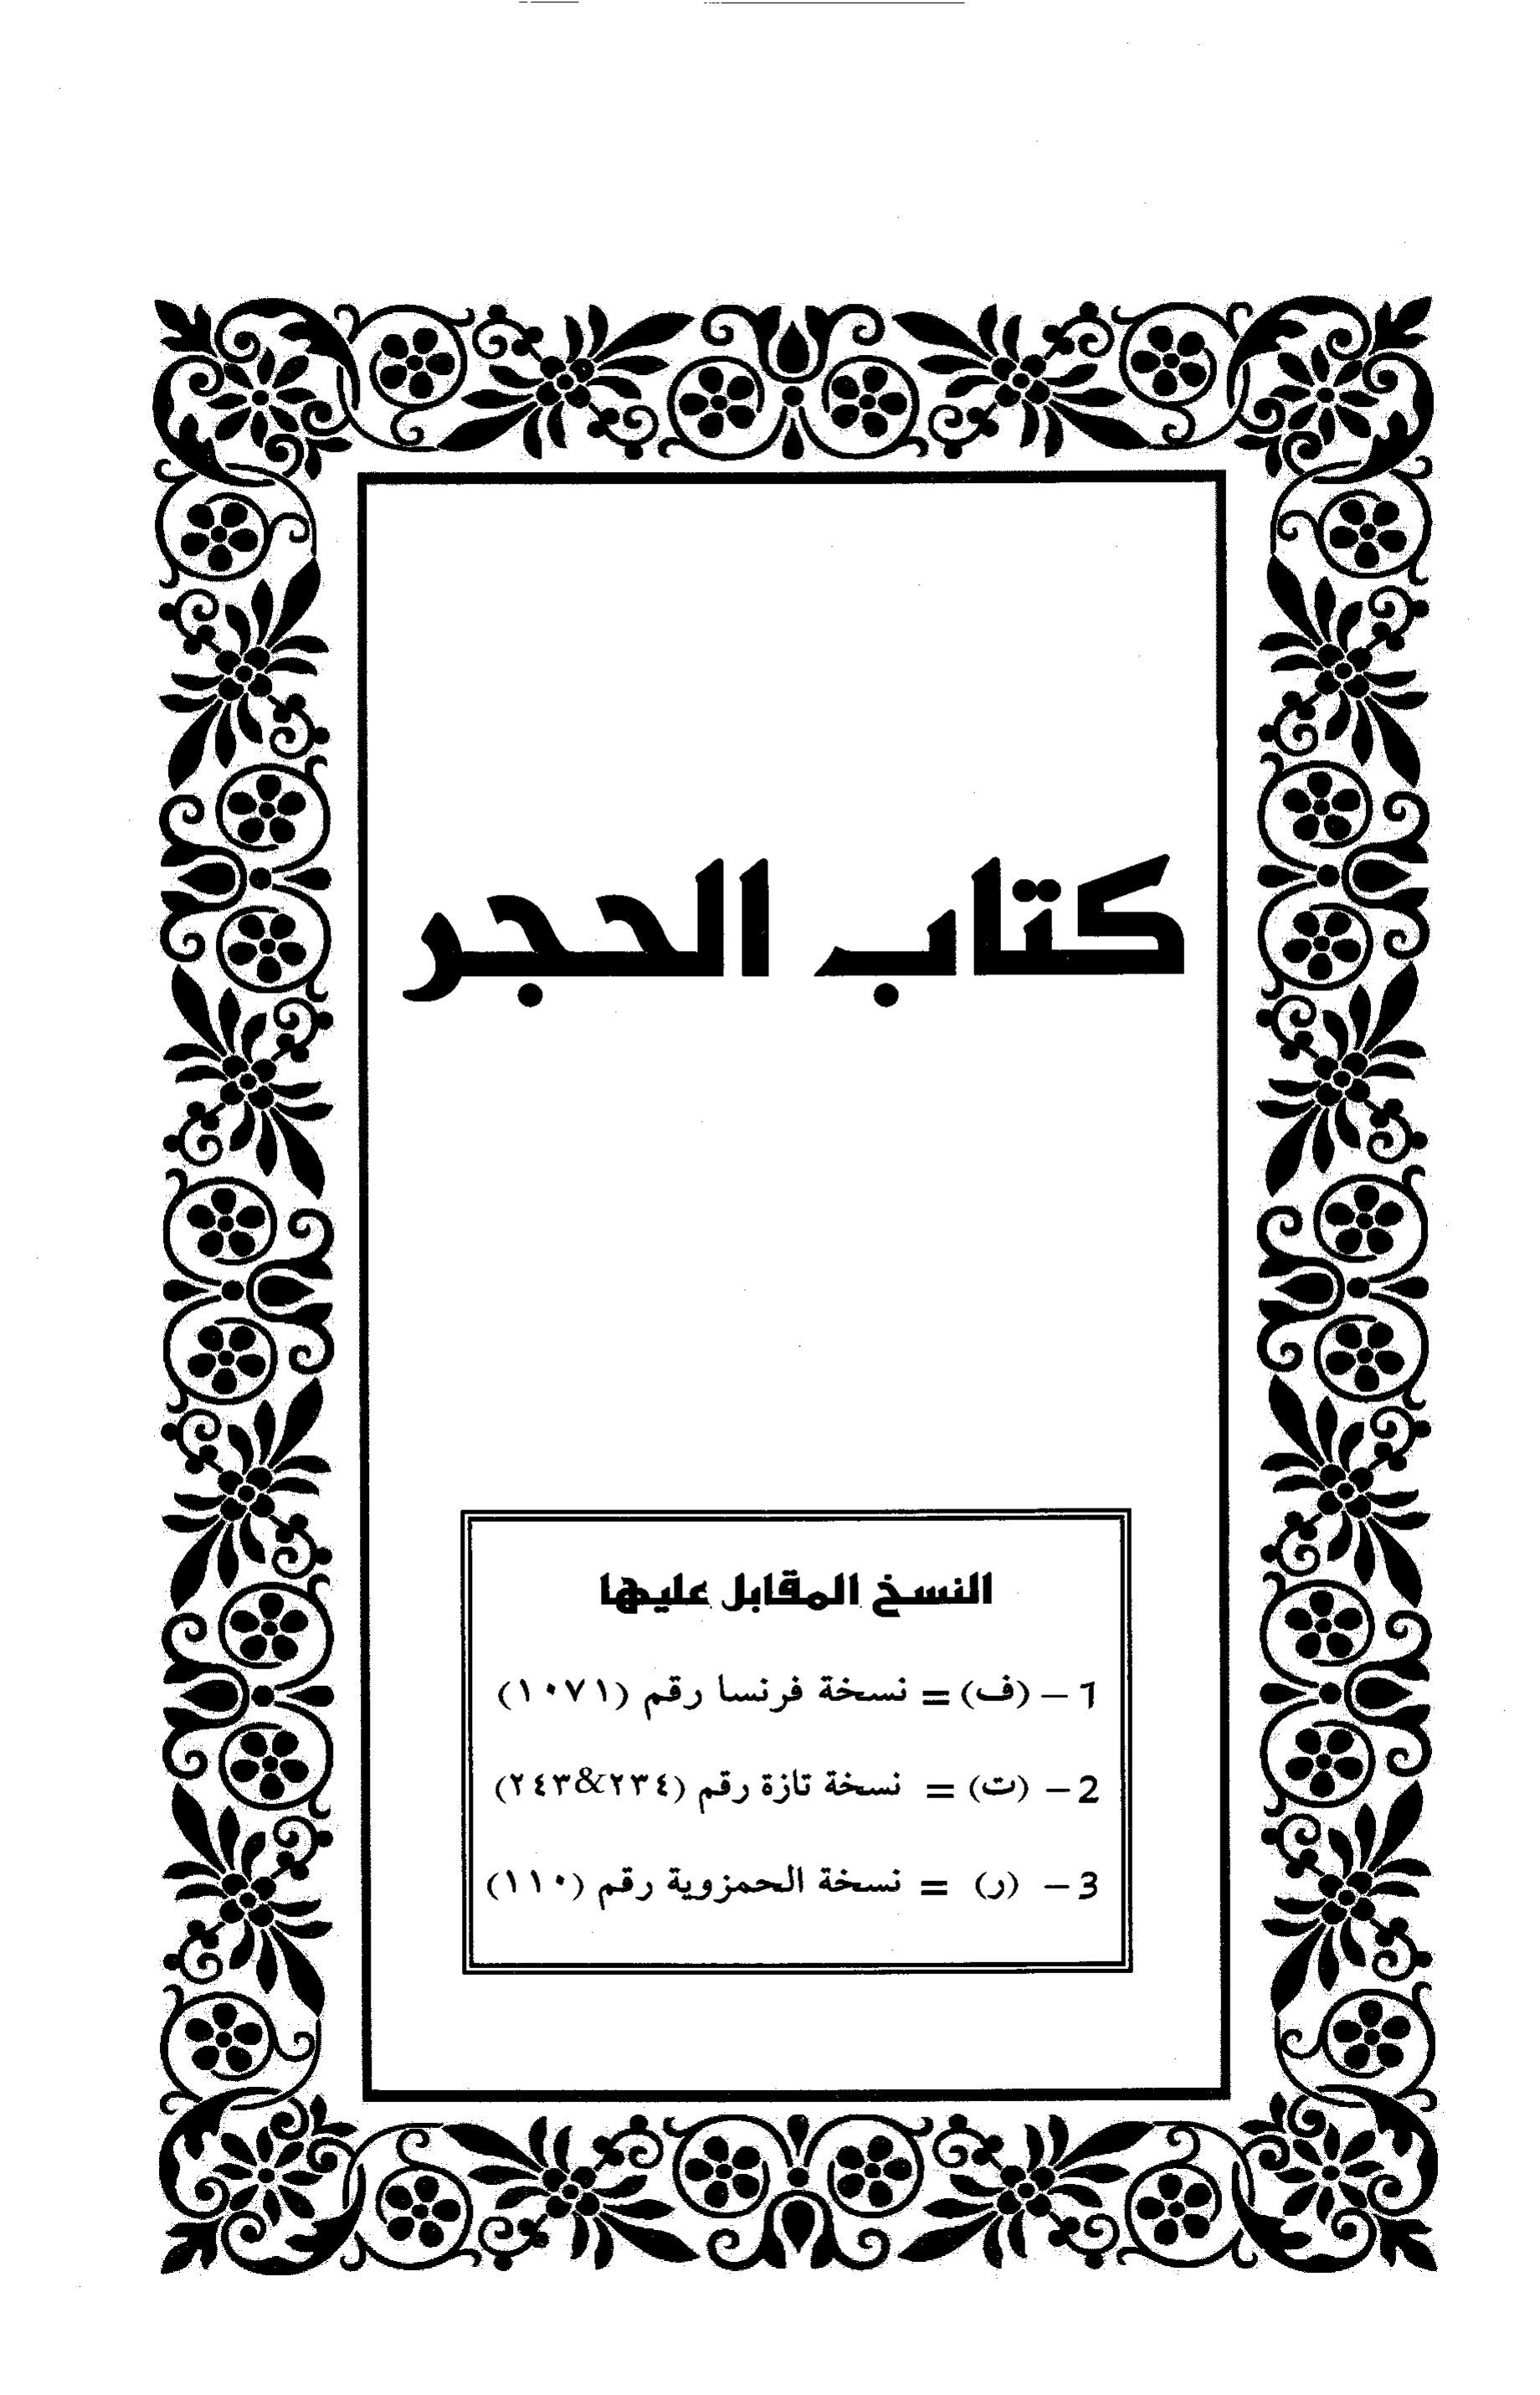 كتاب الحجر
النسخ المقابل عليها
1 - (ف) = نسخة فرنسا رقم (١٠٧١)
2 - (ت) = نسخة تازة رقم (٢٣٤&٢٤٣)
3 - (ر) = نسخة الحمزوية رقم (١١٠)